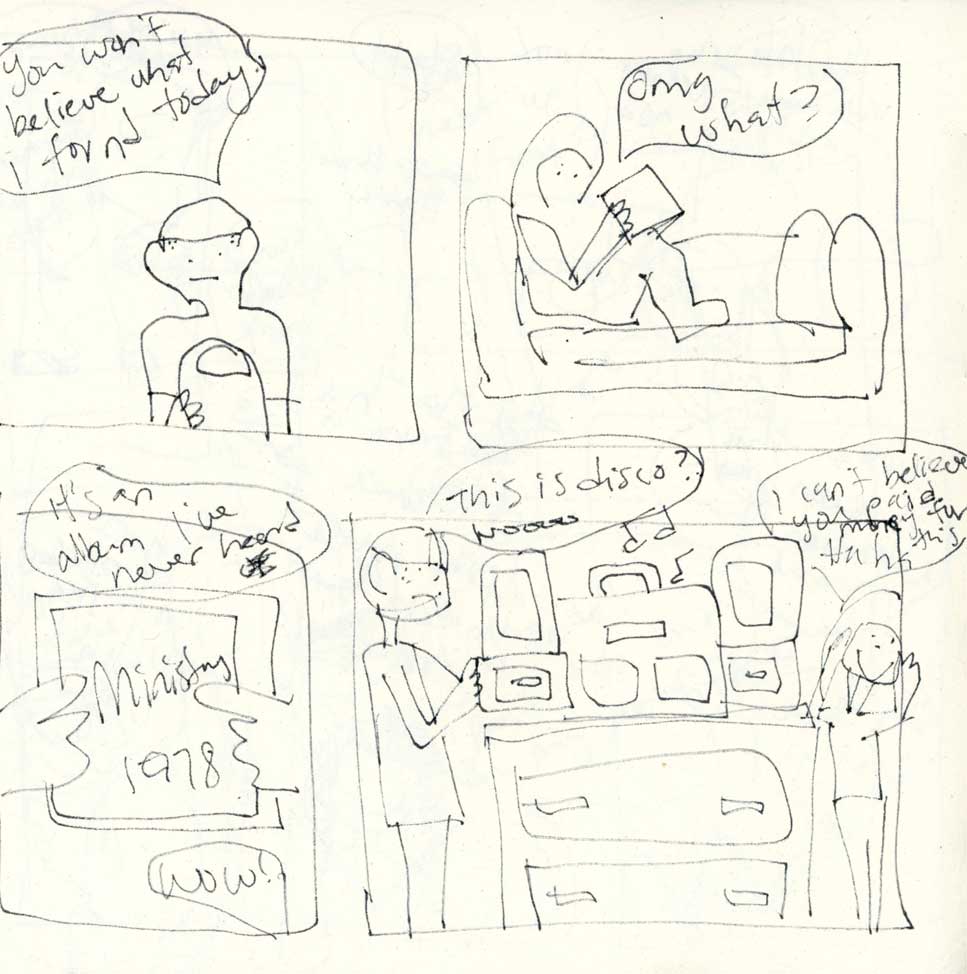 You won't
believe what
I found today!
Omg
what?
It's an
album I've
never heard
Ministry
1978
wow!
This is disco?
Nooooo
I can't believe
you paid
money for
this
Hahh